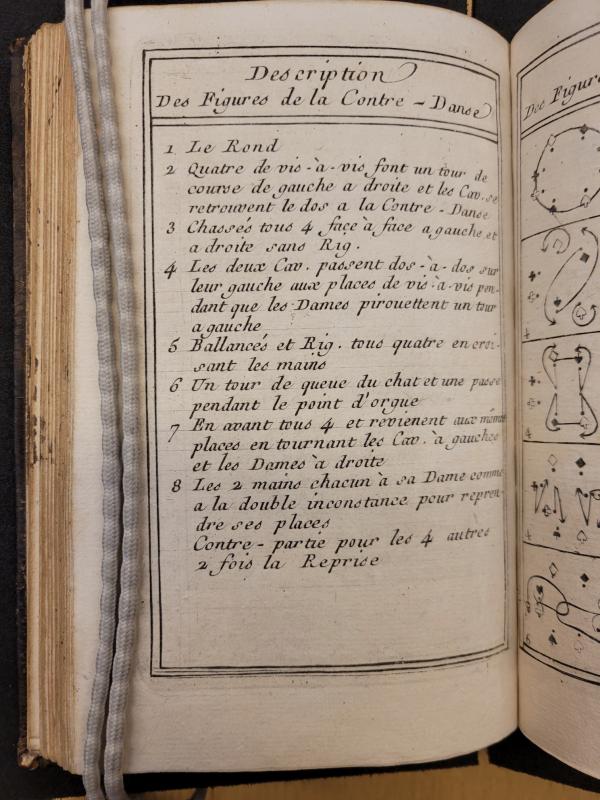 Description
Des Figures de la Contre - Danse
1 Le Rond
2 Quatre de vis-à-vis font un tour de
course de gauche a droite et les Cav. se
retrouvent le dos a la Contre-Danse
3 Chassés tous 4 façe à façe a gauche et
a droite sans Rig.
4 Les deux Cav. passent dos-à-dos sur
leur gauche aux places de vis-à-vis pen-
dant que les Dames pirouettent un tour
a gauche
5 Ballancés et Rig. tous quatre en croi-
sant les mains
6 Un tour de queue du chat et une passe
pendant le point d'orgue
7 En avant tous 4 et revienent aux mêmes
places en tournant les Cav. à gauches
et les Dames à droite
8 Les 2 mains chacun à sa Dame comme
a la double inconstance pour repren-
dre ses places
Contre-partie pour les 4 autres
2 fois la Reprise
Des Figur
4
4
4
8